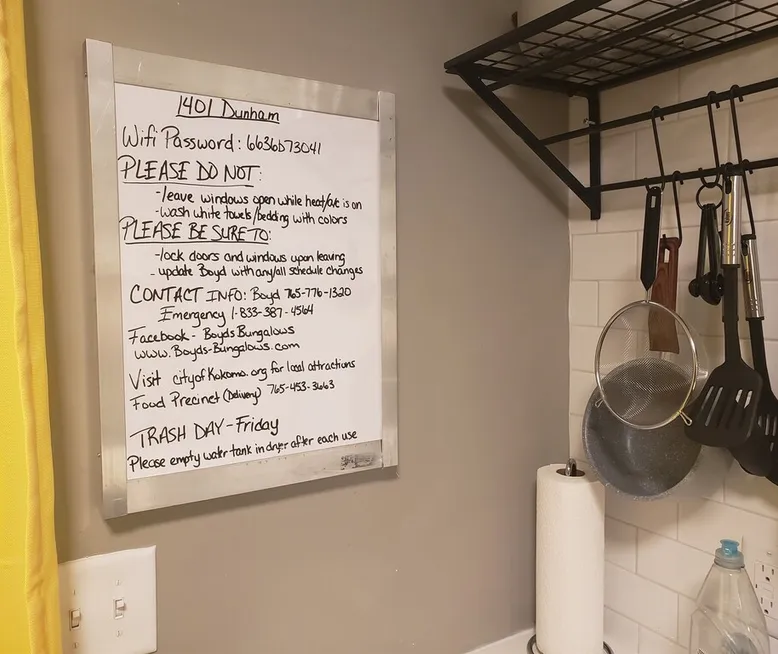 1401 Dunham
Wifi Password: 6636b73041
PLEASE DO NOT:
-leave windows open while heat/ac is on
-wash white towels/bedding with colors
PLEASE BE SURE TO:
-lock doors and windows upon leaving
-update Boyd with any/all schedule changes
CONTACT INFO: Boyd 765-776-1320
Emergency 1-833-387-4564
Facebook - Boyds Bungalows
www.Boyds-Bungalows.com
Visit cityofKokomo.org for local attractions
Food Precinct (Delivery) 765-453-3663
TRASH DAY - Friday
Please empty water tank in dryer after each use